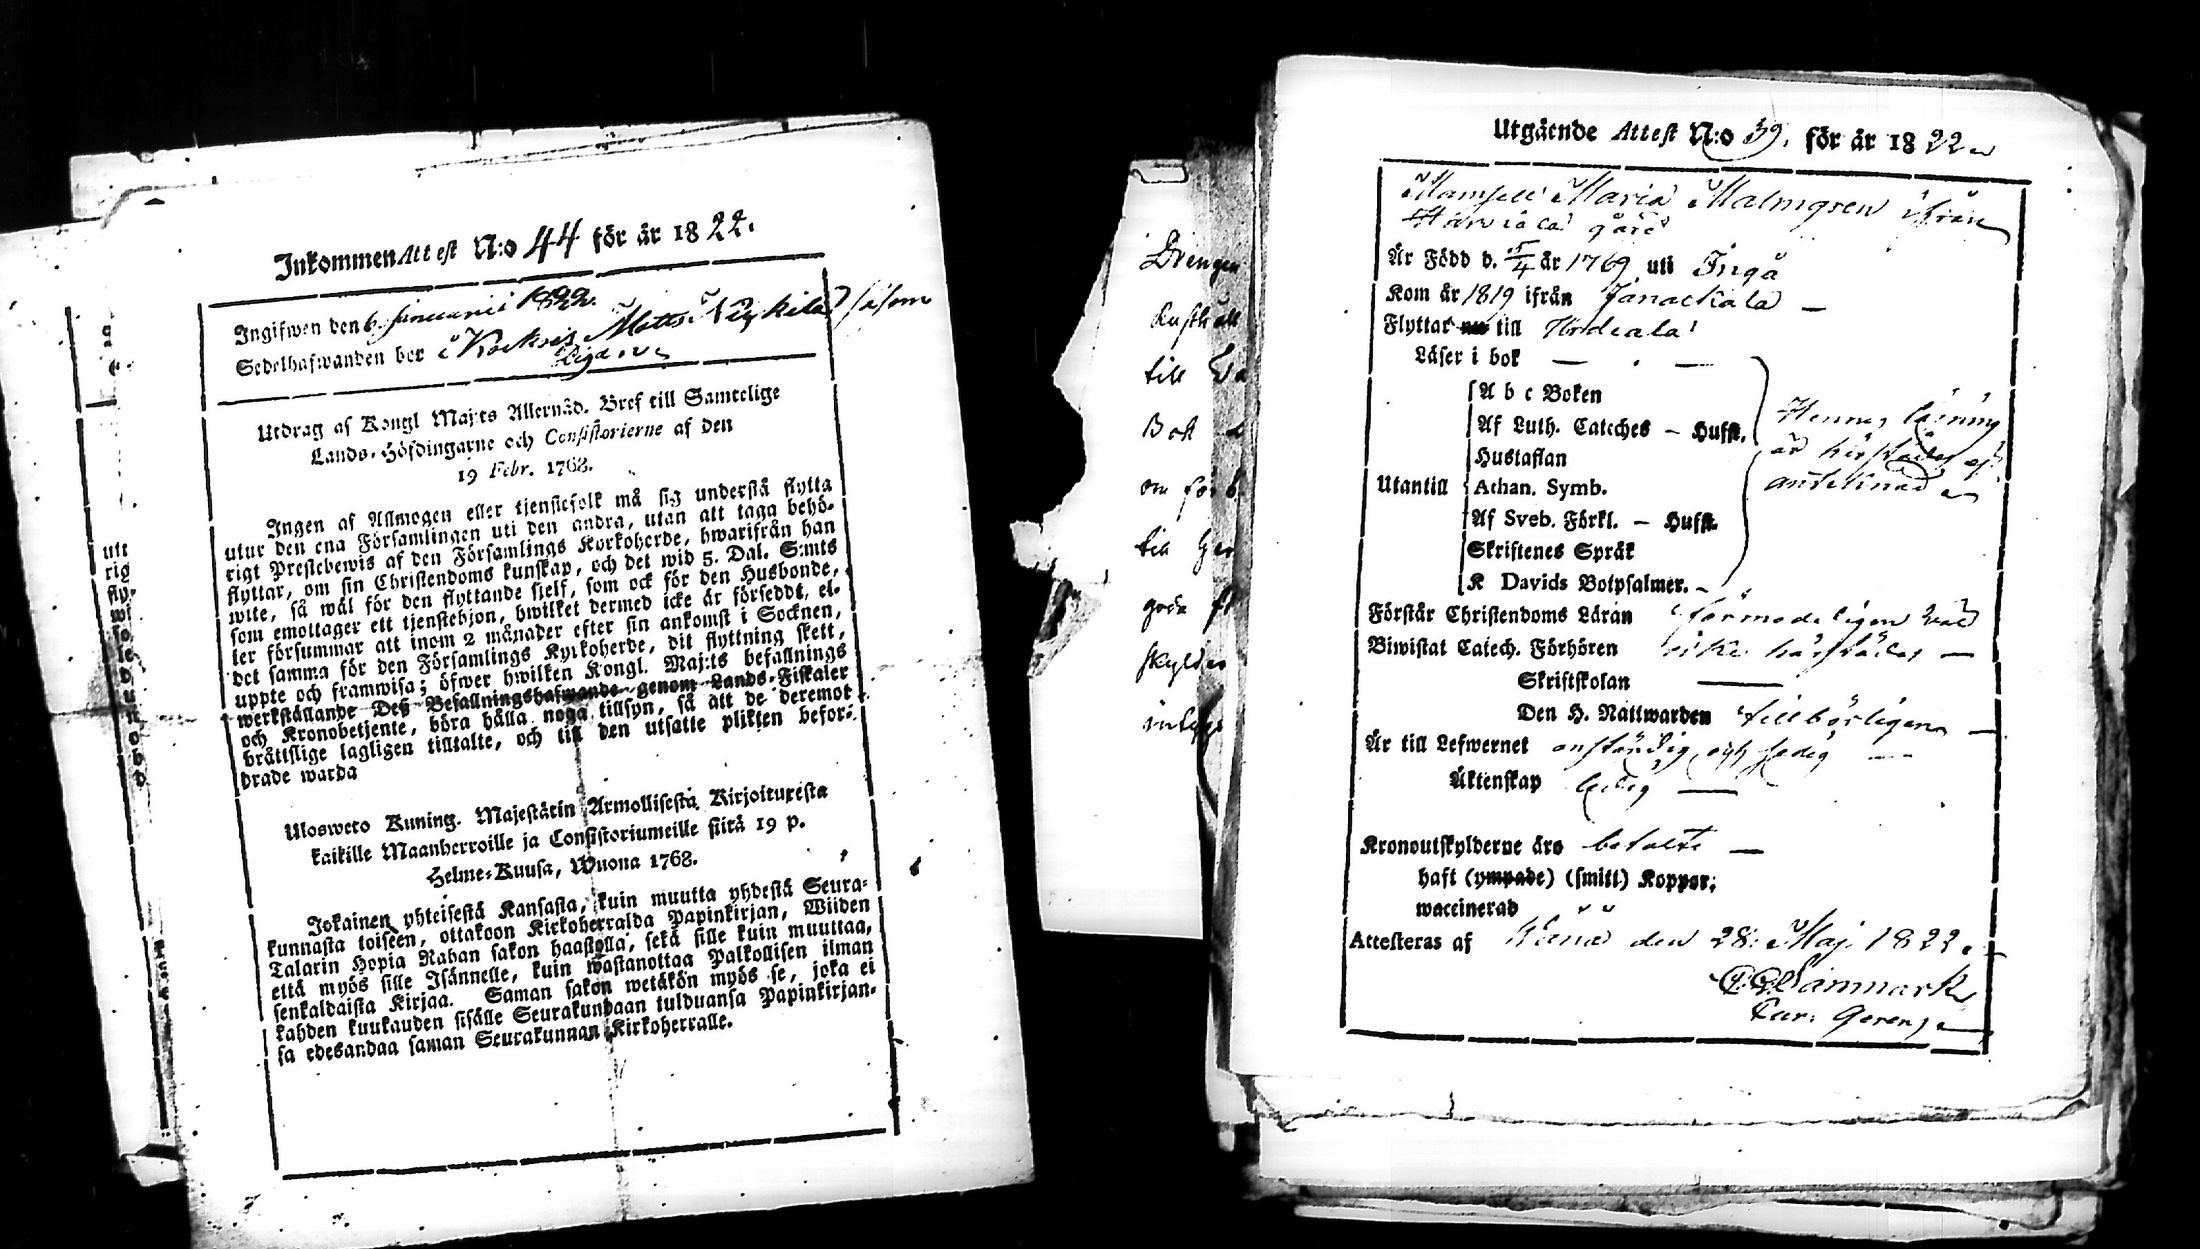 Inkommen Attest N:o 44 för år 1822.
Ingifwen den 6 Januarii 1822.
Sedelhafwanden bor i Matts såsom
Utdrag af Kongl Maj:ts Allernåd. Bref till Samtelige
Lands-Höfdingarne och Consistorierne af den
19 Febr. 1768.
Ingen af Allmogen eller tjenstefolk må sig understå flytta
utur den ena Församlingen uti den andra, utan att taga behö-
rigt Prestebewis af den Församlings Kyrkoherde, hwarifrån han
flyttar, om sin Christendoms kunskap, och det wid 5. Dal. S:mts
wite, så wäl för den flyttande sielf, som ock för den Husbonde,
som emottager ett tjenstehjon, hwilket dermed icke är försedt, el-
ler försummar att inom 2 månader efter sin ankomst i Socknen,
det samma för den Församlings Kyrkoherde, dit flyttning skett,
uppte och framwisa; öfwer hwilken Kongl. Maj:ts befallnings
werkställande Deß Befallningshafwande genom Lands-Fiskaler
och Kronobetjente, böra hålla noga tillsyn, så att de deremot
bråttslige lagligen tilltalte, och till den utsatte plikten befor-
drade warda
Ulosweto Kuning. Majestätin Armollisesta Kirjoituxesta
kaikille Maanherroille ja Consistoriumeille siitä 19 p.
Helme-Kuusa, Wuona 1768.
Jokainen yhteisestä Kansasta, kuin muutta yhdestä Seura-
kunnasta toiseen, ottakoon Kirkoherralda Papinkirjan, Wiiden
Talarin Hopia Rahan sakon haastolla, sekä sille kuin muuttaa,
että myös sille Isännelle, kuin wastanottaa Palkollisen ilman
senkaldaista Kirjaa. Saman sakon wetäkön myös se, joka ei
kahden kuukauden sisälle Seurakundaan tulduansa Papinkirjan-
sa edesandaa saman Seurakunnan Kirkoherralle.
Drengen
till
Bok
till
goda
skylder
Utgående Attest N:o 39. för år 1822
Mamsell Maria Malmgren ifrån
Harviala gård
Är Född d. 5/4 år 1769 uti Ingå
Kom år 1819 ifrån Janackala
Flyttar nu till Urdiala
Läser i bok
A b c Boken
Af Luth. Cateches - Hufst.
Hustaflan
Utantill Athan. Symb.
Af Sveb. Förkl. - Hufst.
Skriftenes Språk
K Davids Botpsalmer.
Hennes läsning
är härstädes ej
antecknad
Förstår Christendoms Läran förmodeligen wäl
Biwistat Catech. Förhören icke härstädes
Skriftskolan
Den H. Nattwarden tillbörligen
Är till Lefwernet anständig och sedig
Äktenskap ledig
Kronoutskylderne äro betalte
haft (ympade) (smitt) Koppor;
waccinerad
Attesteras af den 28: Maj 1822